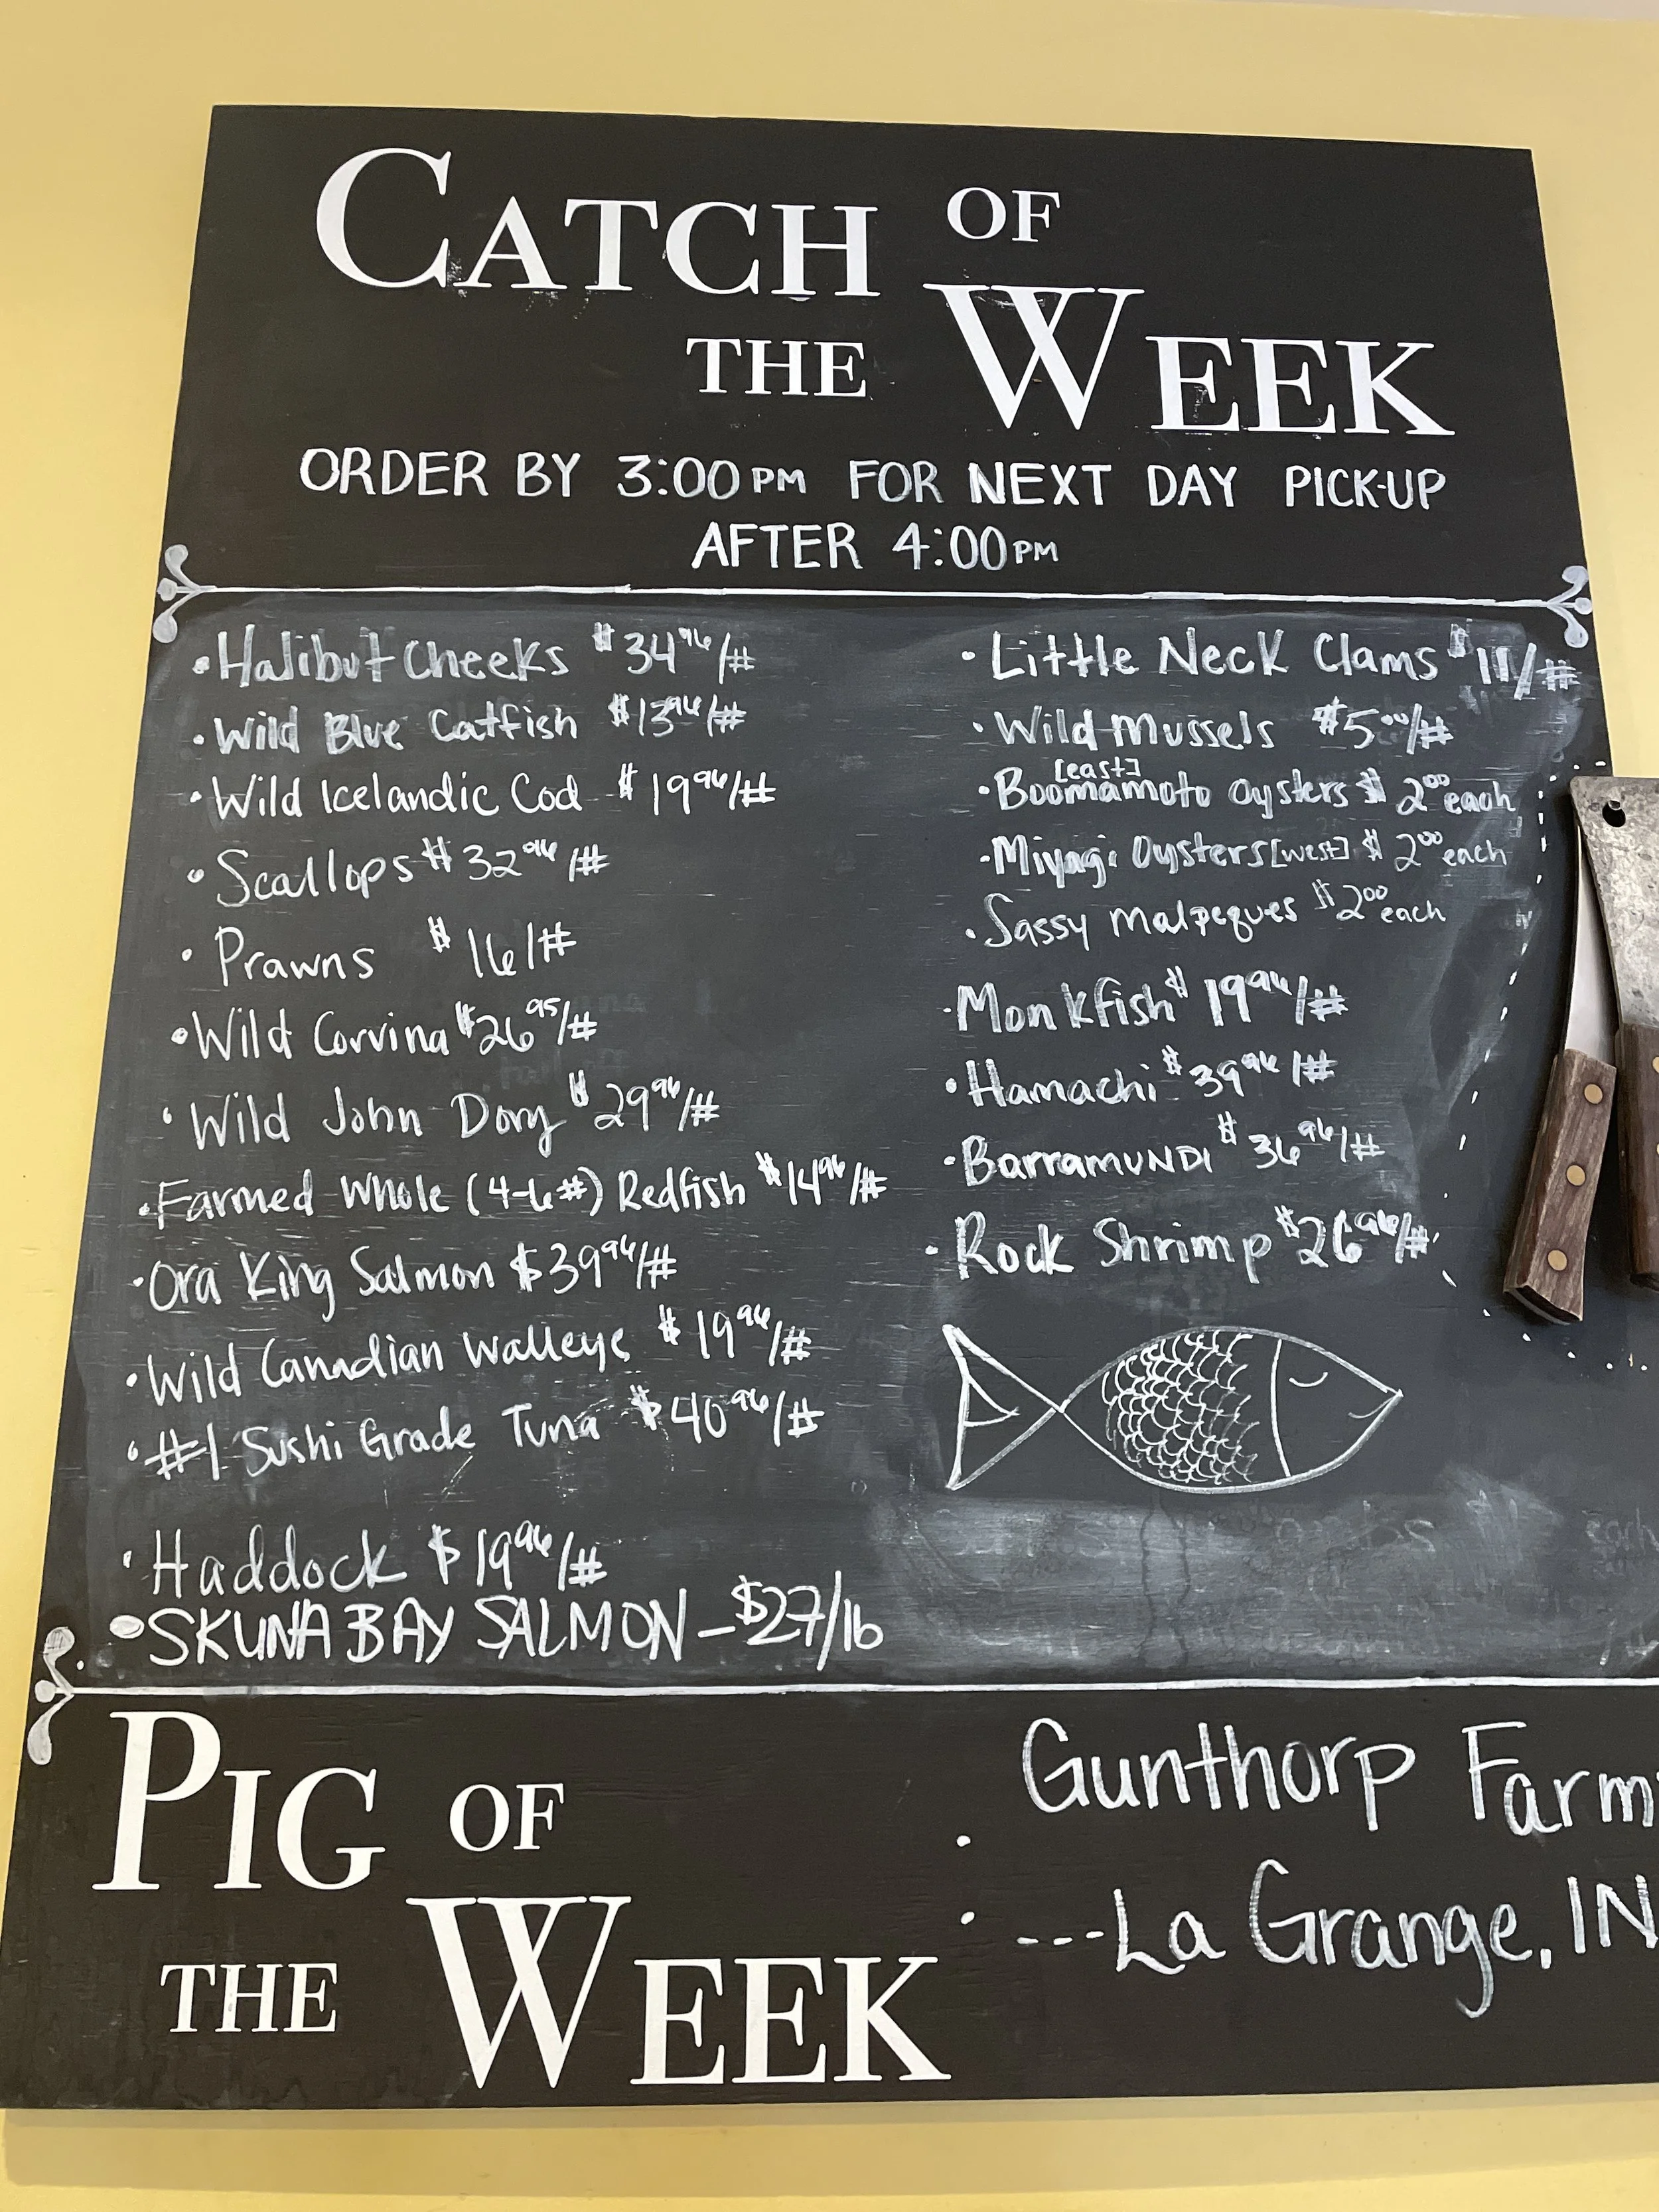 CATCH OF
THE WEEK
ORDER BY 3:00PM FOR NEXT DAY PICK-UP
AFTER 4:00PM
• Halibut Cheeks $34⁹⁶/#
• Wild Blue Catfish $13⁹⁶/#
• Wild Icelandic Cod $19⁹⁶/#
• Scallops $32⁹⁶/#
• Prawns $16/#
• Wild Corvina $26⁹⁵/#
• Wild John Dory $29⁹⁶/#
• Farmed Whole (4-6#) Redfish $14⁹⁶/#
• Ora King Salmon $39⁹⁶/#
• Wild Canadian Walleye $19⁹⁶/#
• #1 Sushi Grade Tuna $40⁹⁶/#
• Haddock $19⁹⁶/#
• SKUNA BAY SALMON – $27/lb
• Little Neck Clams $11/#
• Wild Mussels $5⁰⁰/#
[east]
• Boomamoto Oysters $2⁰⁰ each
• Miyagi Oysters [west] $2⁰⁰ each
• Sassy Malpeques $2⁰⁰ each
• Monkfish $19⁹⁶/#
• Hamachi $39⁹⁶/#
• BarraMUNDI $36⁹⁶/#
• Rock Shrimp $26⁹⁶/#
PIG OF
THE WEEK
Gunthorp Farm
---La Grange, IN